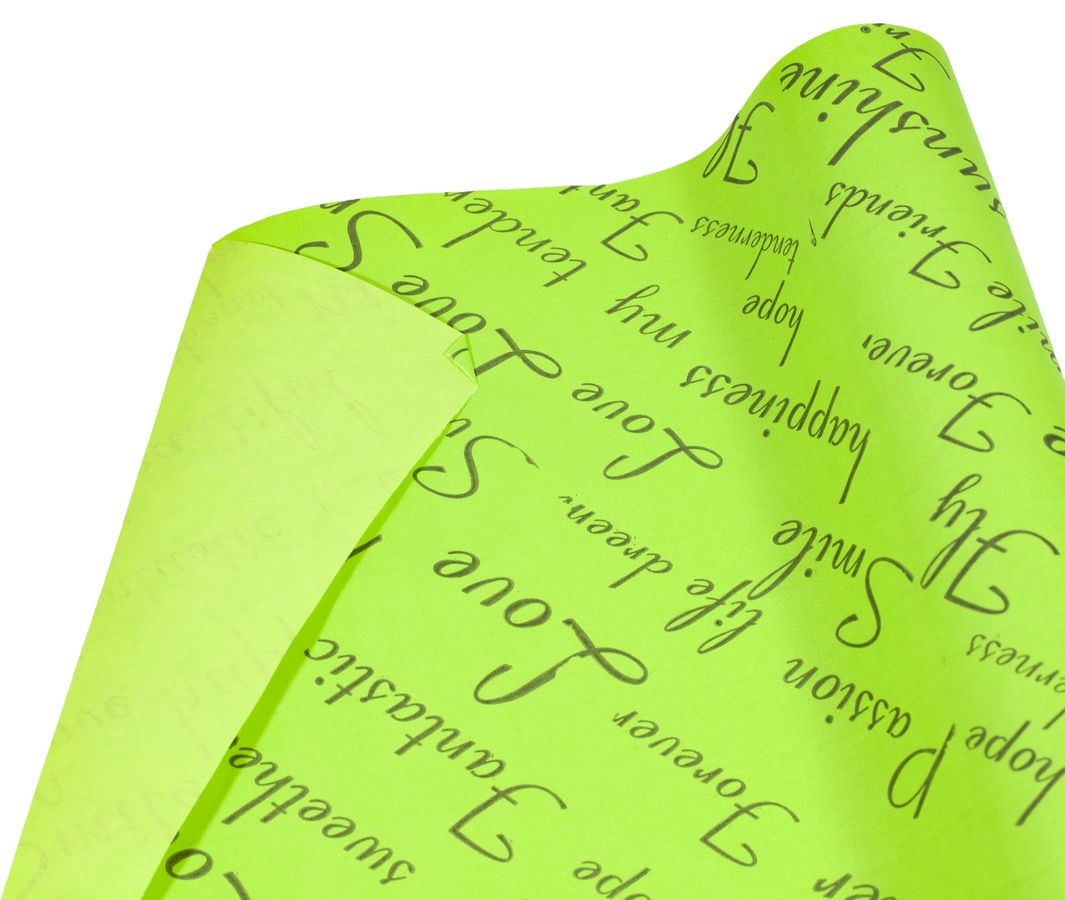 hope
sweethe
Forever
Fantastic
hope
Passion
Love
erness
Smile
life dreem
Fly
happiness
Love
Forever
hope
my
Love
tender
Friends
tenderness
Fant
Sunshine